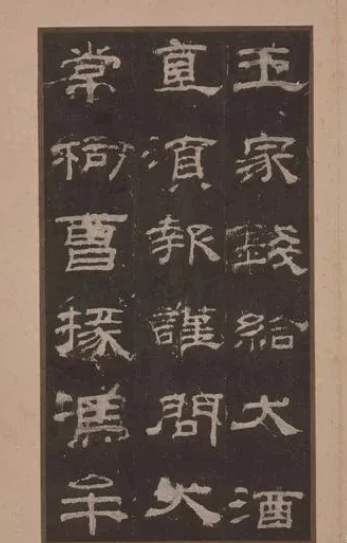 王家錢給大酒
直湏報謹問大
常祠曹掾馮牟